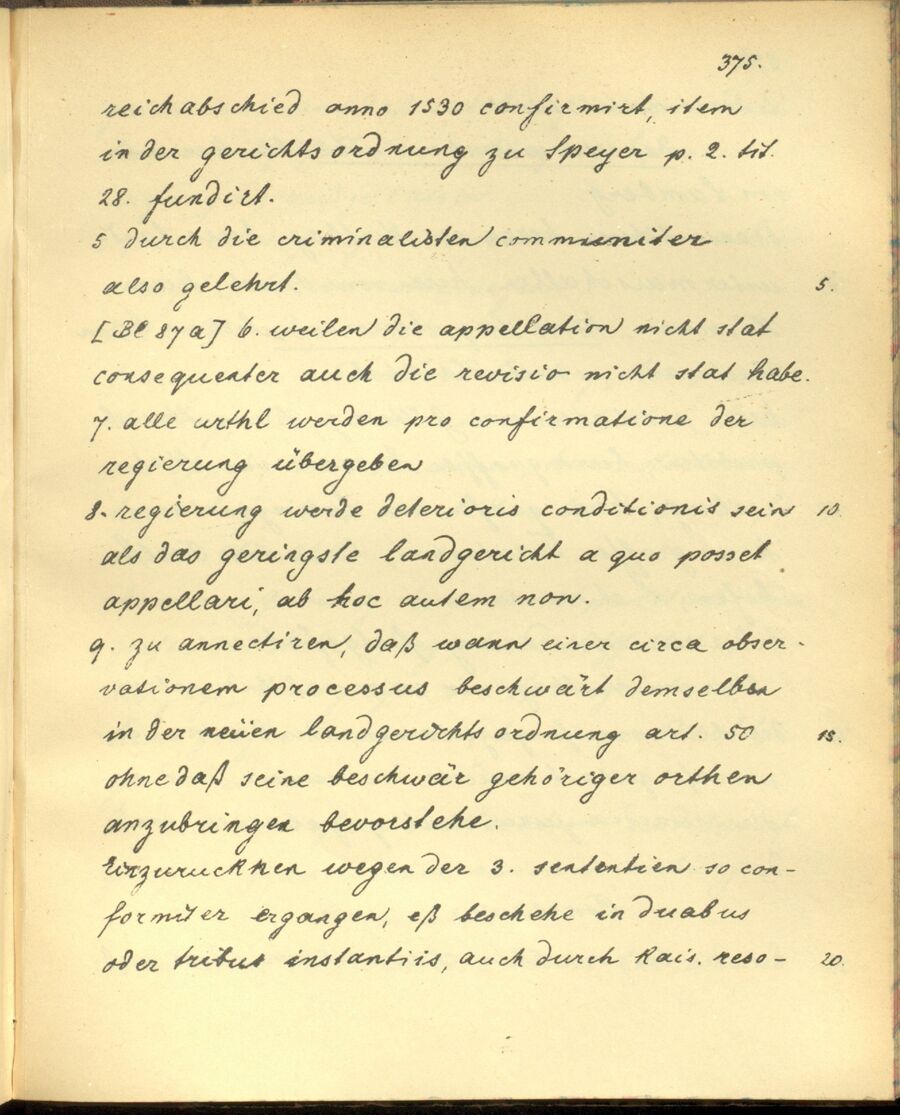 375.
reichabschied anno 1530 confirmirt, item
in der gerichtsordnung zu Speyer p. 2. tit.
28. fundirt.
5 durch die criminalisten communiter
also gelehrt. 5.
[Bl 87a] 6. weilen die appellation nicht stat
consequenter auch die revisio nicht stat habe.
7. alle urthl werden pro confirmatione der
regierung übergeben
8. regierung werde deterioris conditionis sein 10.
als das geringste landgericht a quo posset
appellari, ab hoc autem non.
9. zu annectiren, daß wann einer circa obser-
vationem processus beschwärt demselben
in der neüen landgerichtsordnung art. 50 15.
ohne daß seine beschwär gehöriger orthen
anzubringen bevorstehe.
Einzuruckhen wegen der 3. sententien so con-
formiter ergangen, eß beschehe in duabus
oder tribus instantiis, auch durch kais. reso- 20.